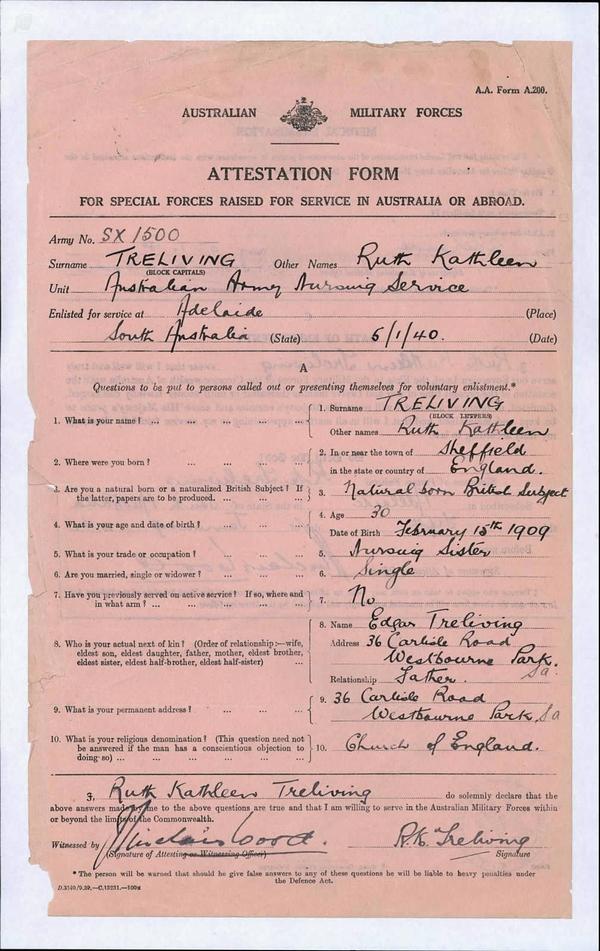 A.A. Form A.200.
AUSTRALIAN MILITARY FORCES
ATTESTATION FORM
FOR SPECIAL FORCES RAISED FOR SERVICE IN AUSTRALIA OR ABROAD.
Army No. SX 1500
Surname TRELIVING Other Names Ruth Kathleen
(BLOCK CAPITALS)
Unit Australian Army Nursing Service
Enlisted for service at Adelaide (Place)
South Australia (State) 5/1/40. (Date)
A
Questions to be put to persons called out or presenting themselves for voluntary enlistment.*
1. What is your name? ... ... ... ... 1. Surname TRELIVING
(BLOCK LETTERS)
Other names Ruth Kathleen
2. Where were you born? ... ... ... ... 2. In or near the town of Sheffield
in the state or country of England.
3. Are you a natural born or a naturalized British Subject? If
the latter, papers are to be produced. ... ... ... 3. Natural born British Subject
4. What is your age and date of birth? ... ... ... 4. Age 30
Date of Birth February 15th 1909
5. What is your trade or occupation? ... ... ... 5. Nursing Sister
6. Are you married, single or widower? ... ... ... 6. Single
7. Have you previously served on active service? If so, where and
in what arm? ... ... ... ... ... 7. No
8. Who is your actual next of kin? (Order of relationship:—wife,
eldest son, eldest daughter, father, mother, eldest brother,
eldest sister, eldest half-brother, eldest half-sister) ...
8. Name Edgar Treliving
Address 36 Carlisle Road
Westbourne Park.
Sa.
Relationship Father.
9. What is your permanent address? ... ... ... 9. 36 Carlisle Road
Westbourne Park, Sa
10. What is your religious denomination? (This question need not
be answered if the man has a conscientious objection to
doing so) ... ... ... ... ... 10. Church of England.
I, Ruth Kathleen Treliving do solemnly declare that the
above answers made by me to the above questions are true and that I am willing to serve in the Australian Military Forces within
or beyond the limits of the Commonwealth.
Witnessed by Sinclair Wood. R.K. Treliving
(Signature of Attesting or Witnessing Officer) Signature
* The person will be warned that should he give false answers to any of these questions he will be liable to heavy penalties under
the Defence Act.
D.3140/9.39.—C.13231.—100M